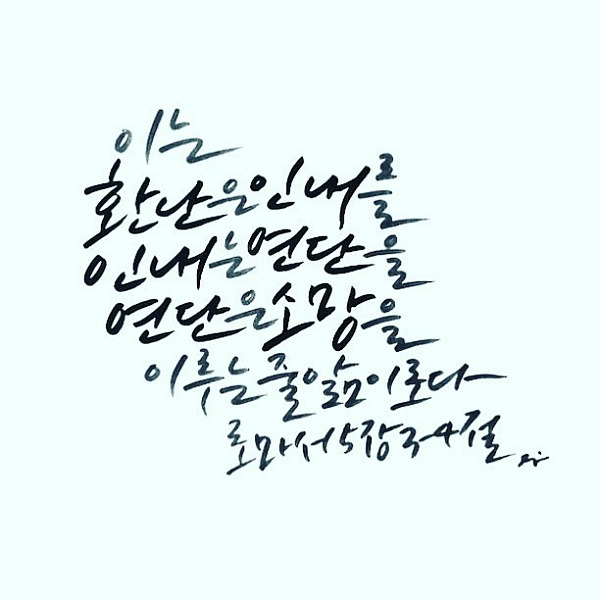 이는
환난은인내를
인내는연단을
연단은소망을
이루는줄앎이로다
로마서5장3-4절